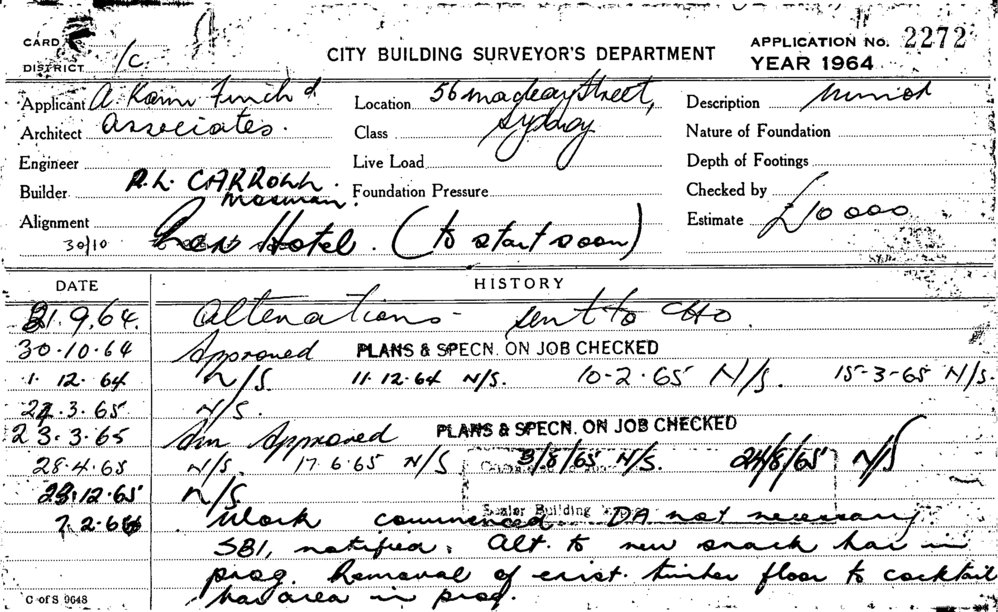 CARD
DISTRICT 1/C
CITY BUILDING SURVEYOR'S DEPARTMENT
APPLICATION No. 2272
YEAR 1964
Applicant A. Kann Finch &
Architect Associates.
Engineer
Builder R.L. CARROLL.
Mosman.
Alignment
30/10
Location 56 Macleay Street,
Sydney
Class
Live Load
Foundation Pressure
Description Minor
Nature of Foundation
Depth of Footings
Checked by
Estimate £10 000
Rex Hotel. (to start soon)
DATE HISTORY
21.9.64. Alterations - sent to CHO.
30.10.64 Approved PLANS & SPECN. ON JOB CHECKED
1. 12. 64 N/S. 11.12.64 N/S. 10-2.65 N/S. 15-3-65 N/S.
22.3.65 N/S.
23.3.65 Am Approved PLANS & SPECN. ON JOB CHECKED
28.4.65 N/S. 17.6.65 N/S 3/8/65 N/S. 24/8/65 N/S
Senior Building
23.12.65 N/S
7.2.66 Work commenced. DA not necessary
SBI, notified. Alt. to new snack bar in
prog. Removal of exist. timber floor to cocktail
bar area in prog.
C of S 9648